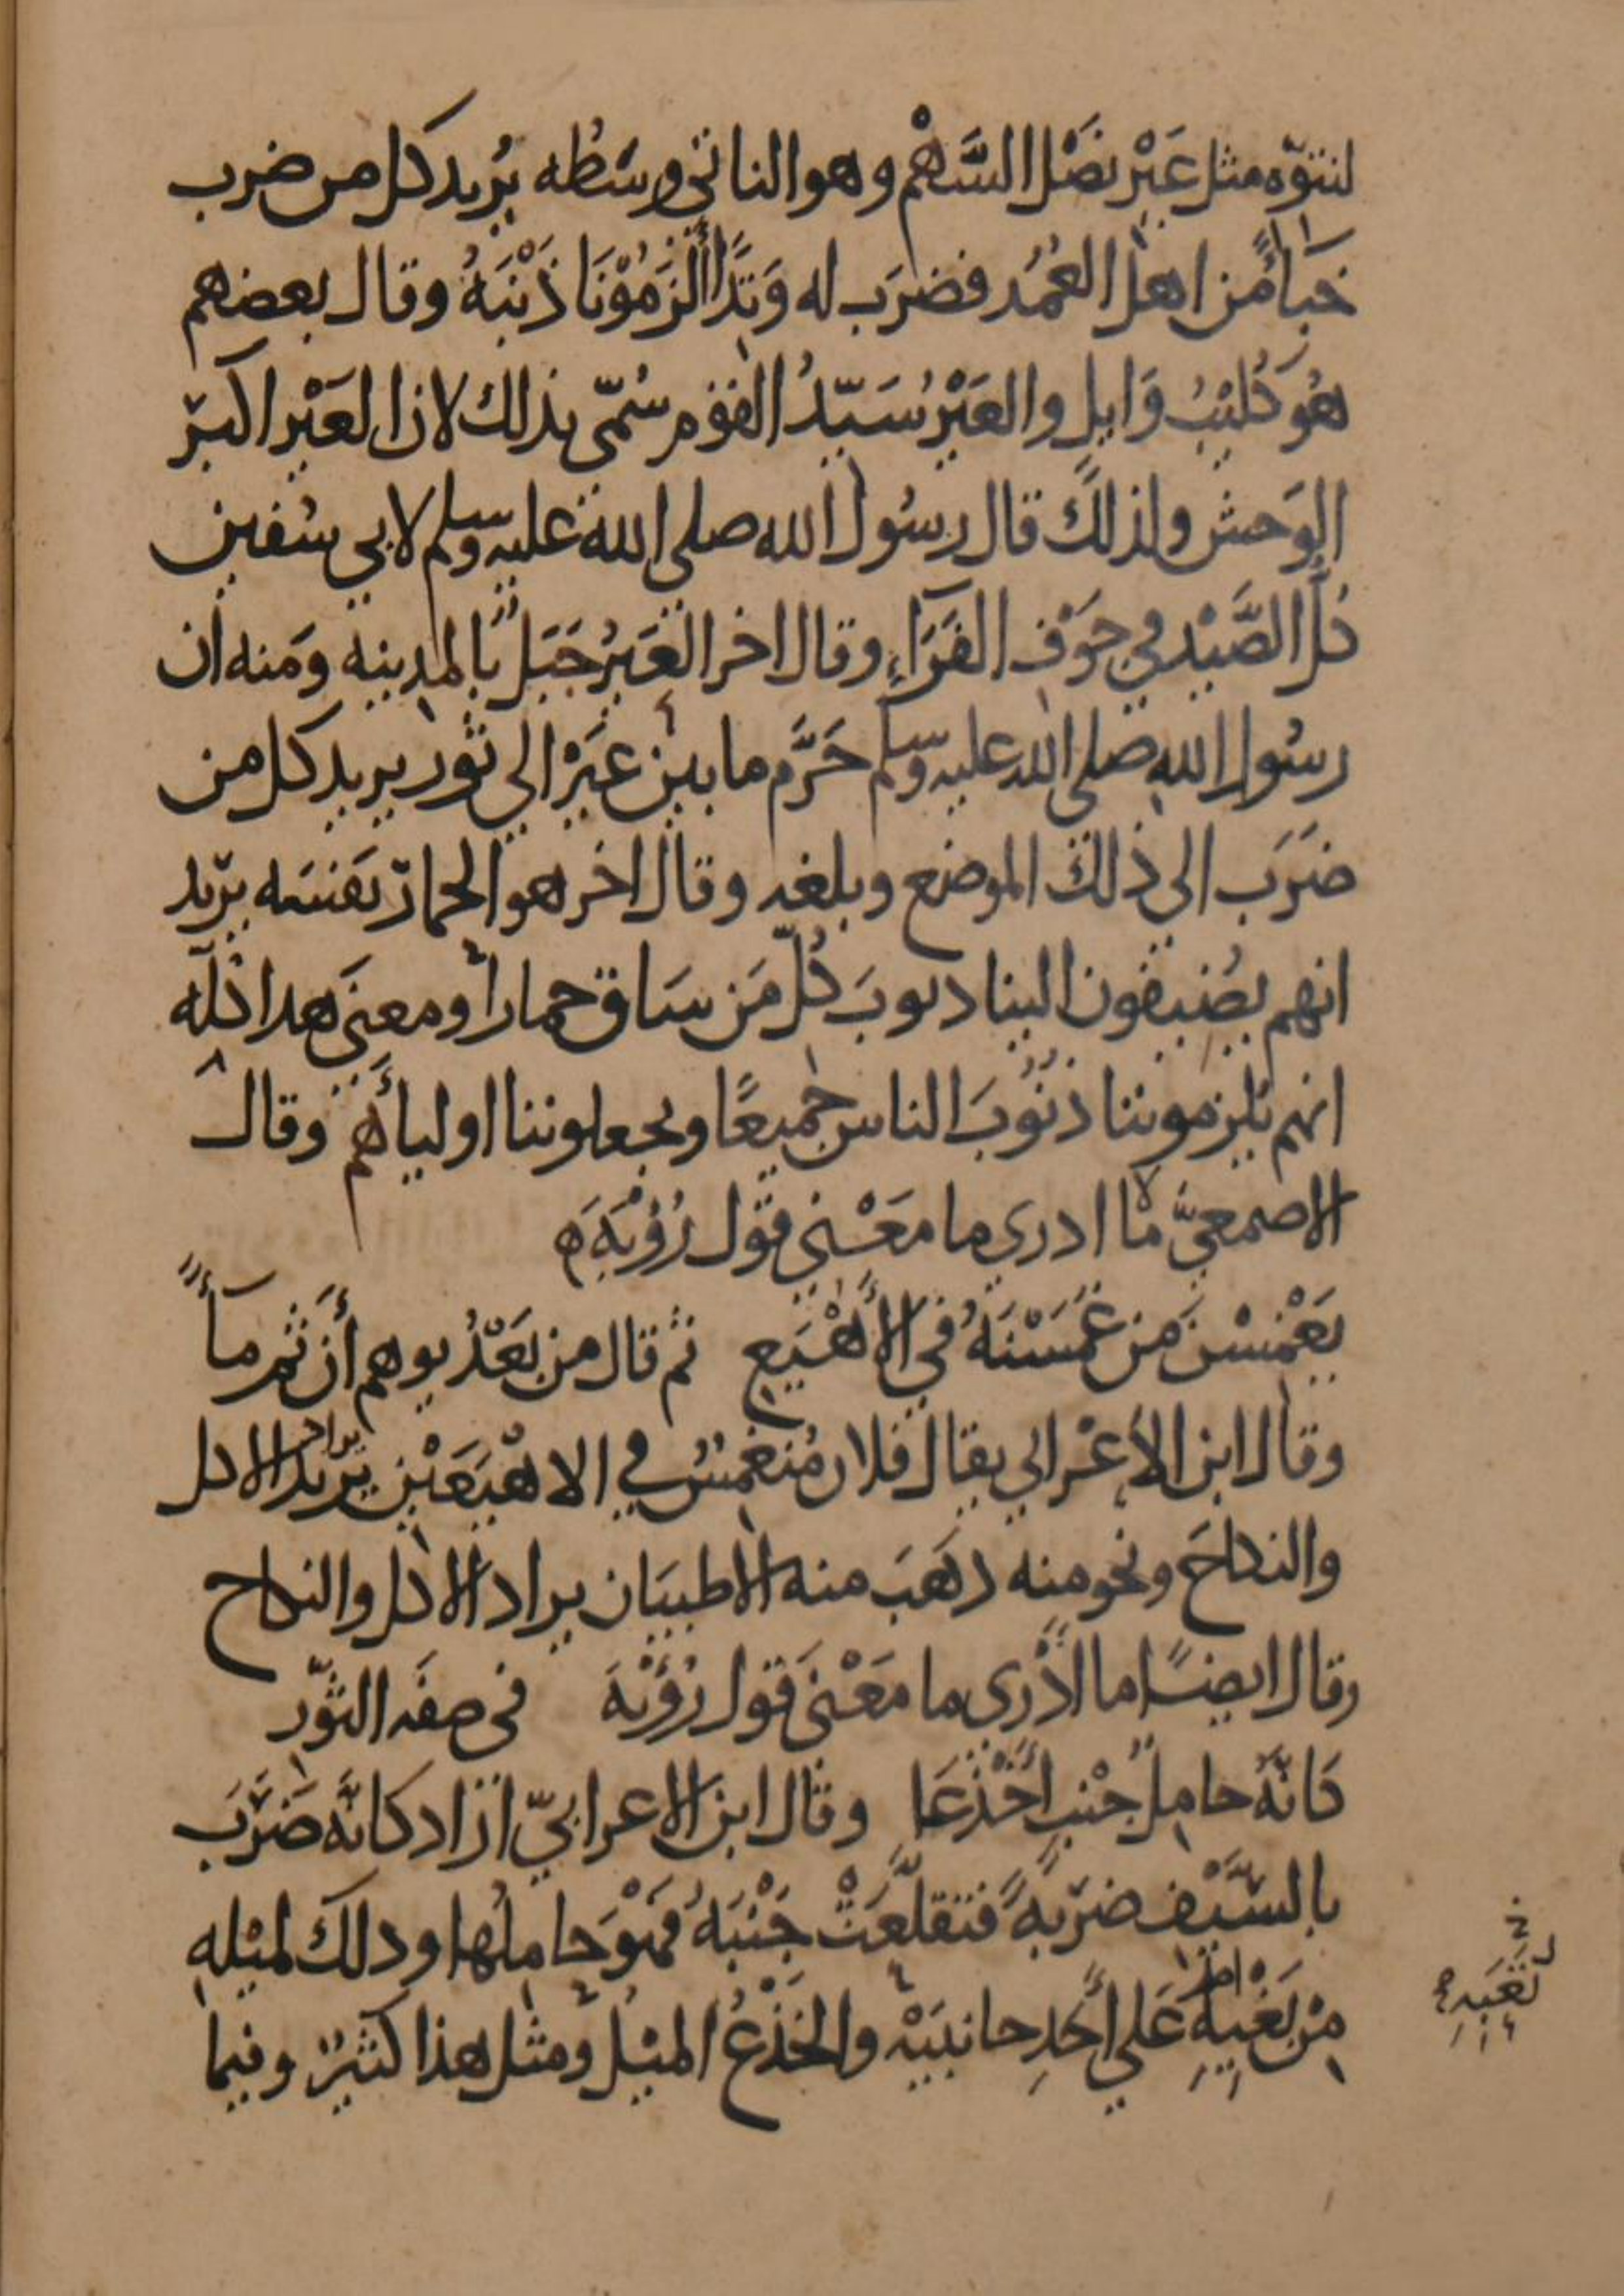 لنتوّه مثل عَيْر نصْل السَّهْم وهو الناتي وسَطُه يُريد كل من ضرب
خباءً من اهل العُمُد فضرَب له وَتَدًا ألزَمُوْنَا ذَنْبَهُ وقال بعضهم
هُوَ كُلَيْبُ وَايلٍ والعَيْرُ سَيّدُ القوْم سُمّي بذلك لان العَيْر اكبر
الوَحش ولذلك قال رسُول الله صلى الله عليه وسلم لابي سُفين
كلُّ الصَّيْد في جَوْف الفَرَاءِ وقال اخر العَيْرُ جَبَلٌ بالمدينه ومنه ان
رسُول الله صلى الله عليه وسلم حَرَّم ما بين عَيْرْ الي ثور يريد كل من
ضَرَب الي ذلك الموضع وبلغه وقال اخر هو الحمار نفسَه يريد
انهم يُضيفون الينا دنوبَ كُلّ مَن سَاق حمارا ومعنَي هدا كله
انهم يلزموننا ذنُوبَ الناس جميعًا ويجعلوننا اوليأهم وقال
الاصمعيّ ما ادري ما معْني قول رُؤْبَة
يَغْمِسْنَ من غَمَسْنَهُ في الأَهْيَع ثم قال من بَعْدُ يوهم أن ثم مأً
وقال ابن الأعْرابي يقال فلان مُنغمسٌ في الاهْيَعَيْن يراد يريد الاكل
والنكاحَ ونحو منه دهَبَ منه الاطيبَان يراد الاكل والنكاح
وقال ايضًا ما ادْري ما مَعْنَي قول رُؤْبَةَ في صفَه الثوْر
كانّهُ حاملُ جنْبٍ أخْذَعَا وقال ابن الاعرابيّ اراد كانّه ضَرَبَ
بالسَّيْف ضرْبةً فتقلَّعَتْ جَنْبَهُ فهْوَ حاملُها ودلك لميْله
منْ بَغْيهِ عَلي أَحَدِ جانبَيْه والخَذْعُ الميْل ومثل هذا كثيرٌ وفيما